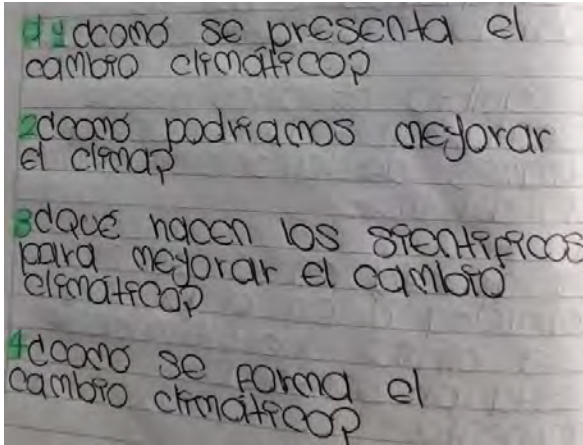 1 ¿como se presenta el
cambio climático?
2 ¿como podriamos mejorar
el clima?
3 ¿Qué hacen los sientificos
para mejorar el cambio
climático?
4 ¿como se forma el
cambio climático?